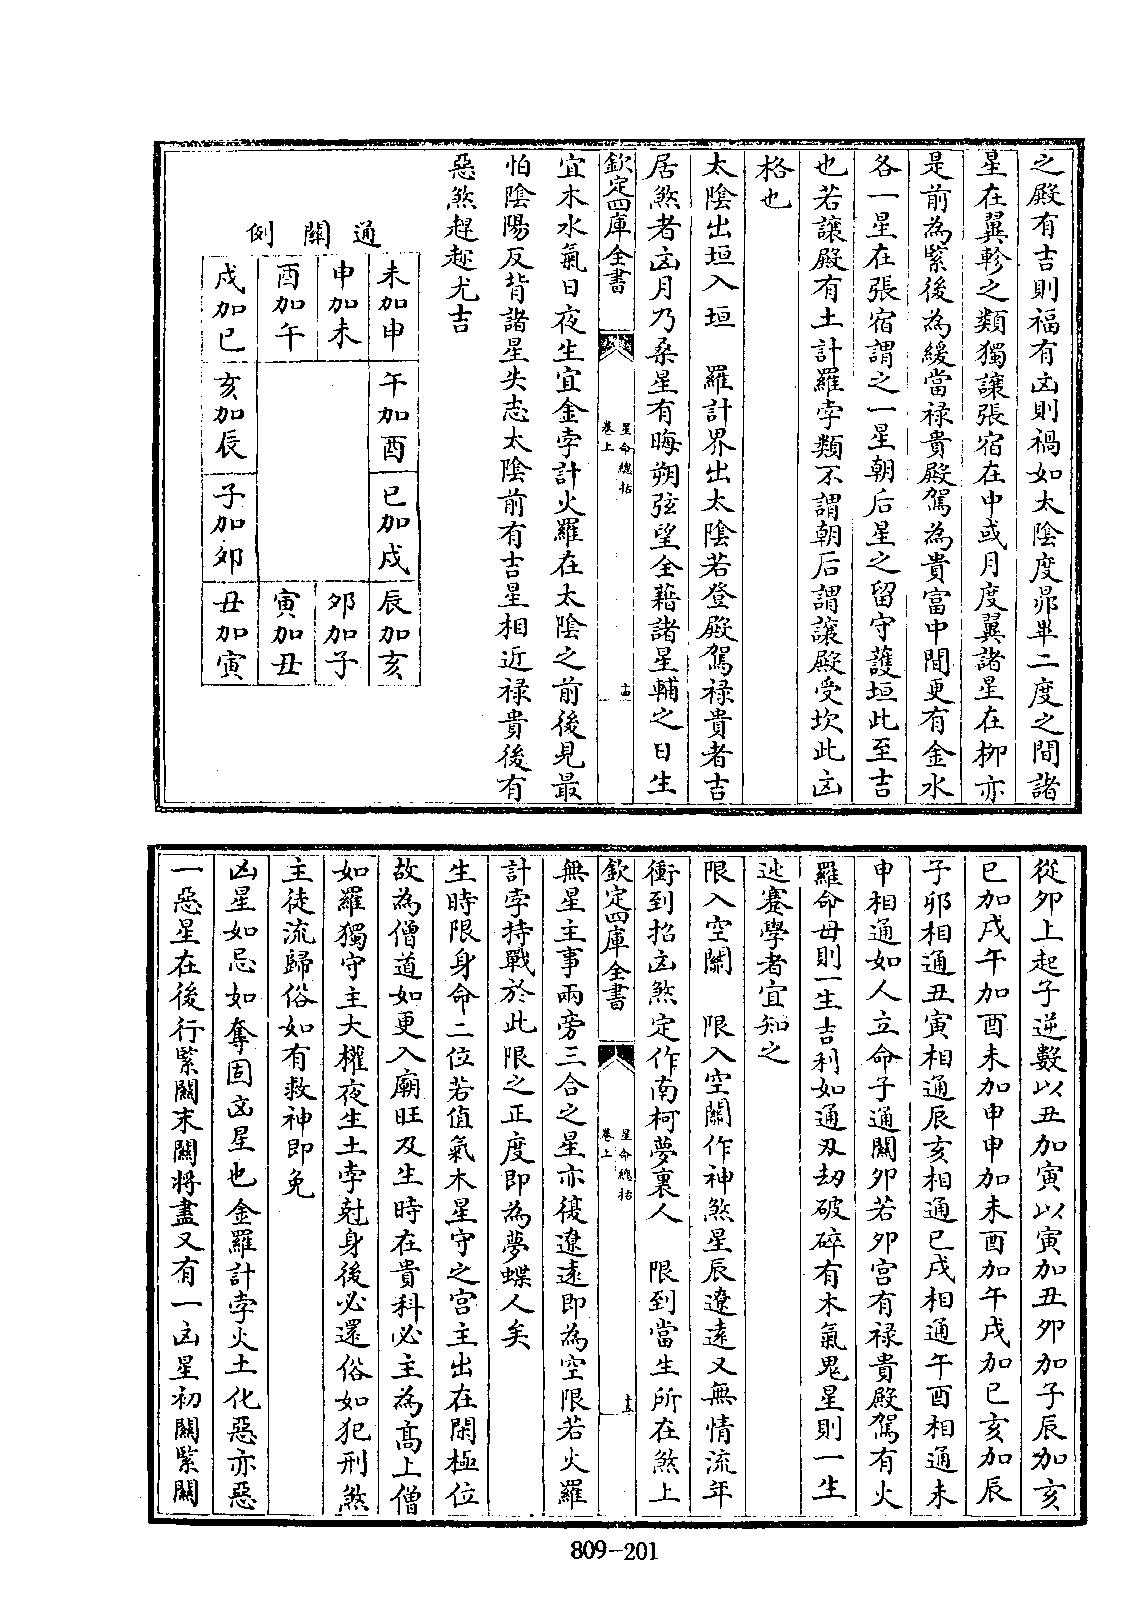 之殿有吉則福有凶則禍如太陰度昴畢二度之間諸
星在翼軫之類獨讓張宿在中或月度翼諸星在柳亦
是前為緊後為緩當禄貴殿駕為貴富中間更有金水
各一星在張宿謂之一星朝后星之留守護垣此至吉
也若讓殿有土計羅孛類不謂朝后謂讓殿受坎此凶
格也
太陰出垣入垣　羅計界出太陰若登殿駕禄貴者吉
居煞者凶月乃桑星有晦朔弦望全藉諸星輔之日生
欽定四庫全書
星命總括
卷上
十四
宜木水氣日夜生宜金孛計火羅在太陰之前後見最
怕陰陽反背諸星失志太陰前有吉星相近禄貴後有
惡煞趕趂尤吉
通關例
未加申
申加未
酉加午
戌加巳
午加酉
亥加辰
巳加戌
子加夘
辰加亥
夘加子
寅加丑
丑加寅
從夘上起子逆數以丑加寅以寅加丑夘加子辰加亥
巳加戌午加酉未加申申加未酉加午戌加巳亥加辰
子卯相通丑寅相通辰亥相通巳戌相通午酉相通未
申相通如人立命子通關夘若夘宫有禄貴殿駕有火
羅命母則一生吉利如通刄刼破碎有木氣鬼星則一生
迍蹇學者宜知之
限入空關　限入空關作神煞星辰遼遠又無情流年
衝到招凶煞定作南柯夢裏人　限到當生所在煞上
欽定四庫全書
星命總括
卷上
十五
無星主事兩旁三合之星亦復遼遠即為空限若火羅
計孛持戰於此限之正度即為夢蝶人矣
生時限身命二位若值氣木星守之宫主出在閑極位
故為僧道如更入廟旺及生時在貴科必主為髙上僧
如羅獨守主大權夜生土孛尅身後必還俗如犯刑煞
主徒流歸俗如有救神即免
凶星如忌如奪固凶星也金羅計孛火土化惡亦惡
一惡星在後行緊關末關將盡又有一凶星初關緊關
809-201